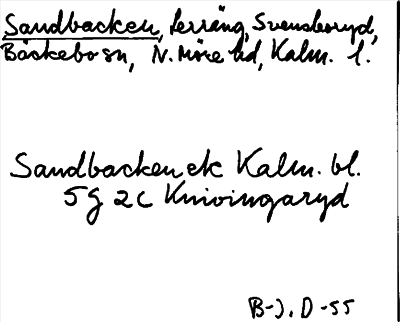 Sandbacken, terräng, Svensboryd,
Bäckebo sn, N. Möre hd, Kalm. l.
Sandbacken ek Kalm. bl.
5 g 2 c Knivingaryd
B-J. D -55